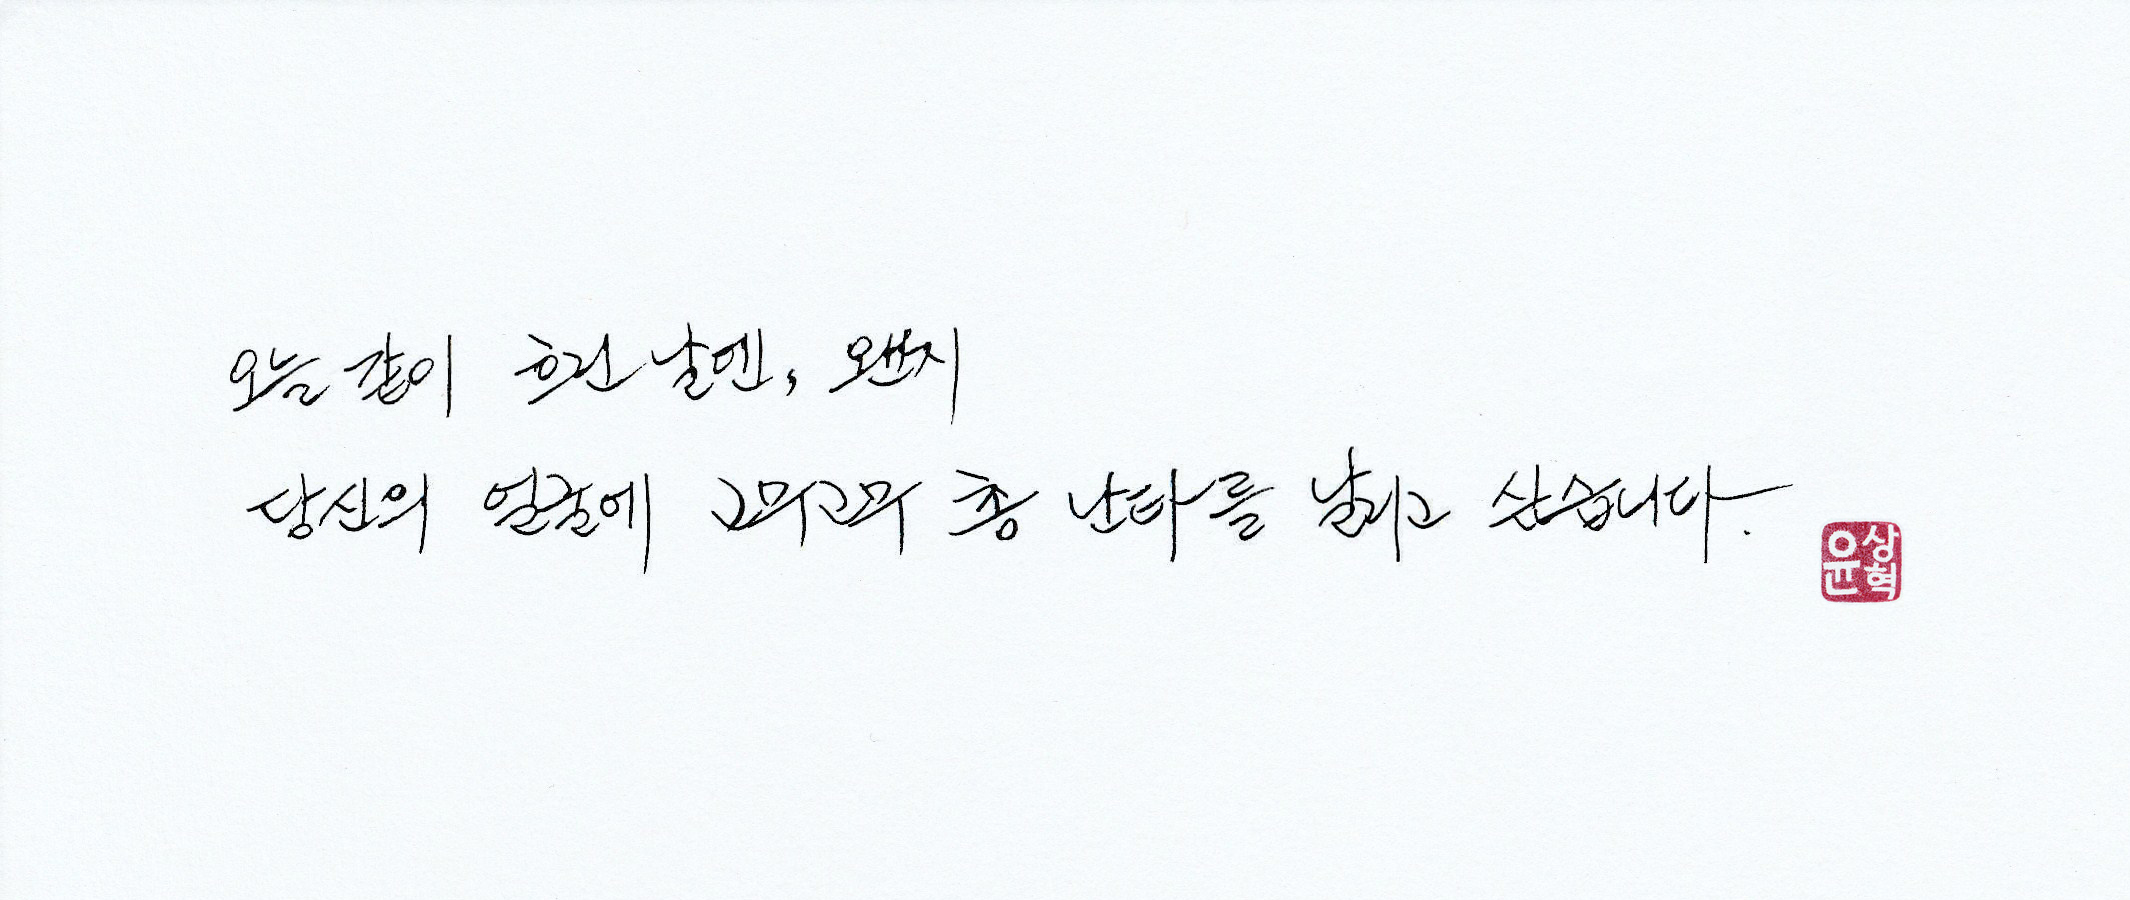 오늘 같이 흐린 날엔, 왠지
당신의 얼굴에 고무고무 총 난타를 날리고 싶습니다.
윤상혁